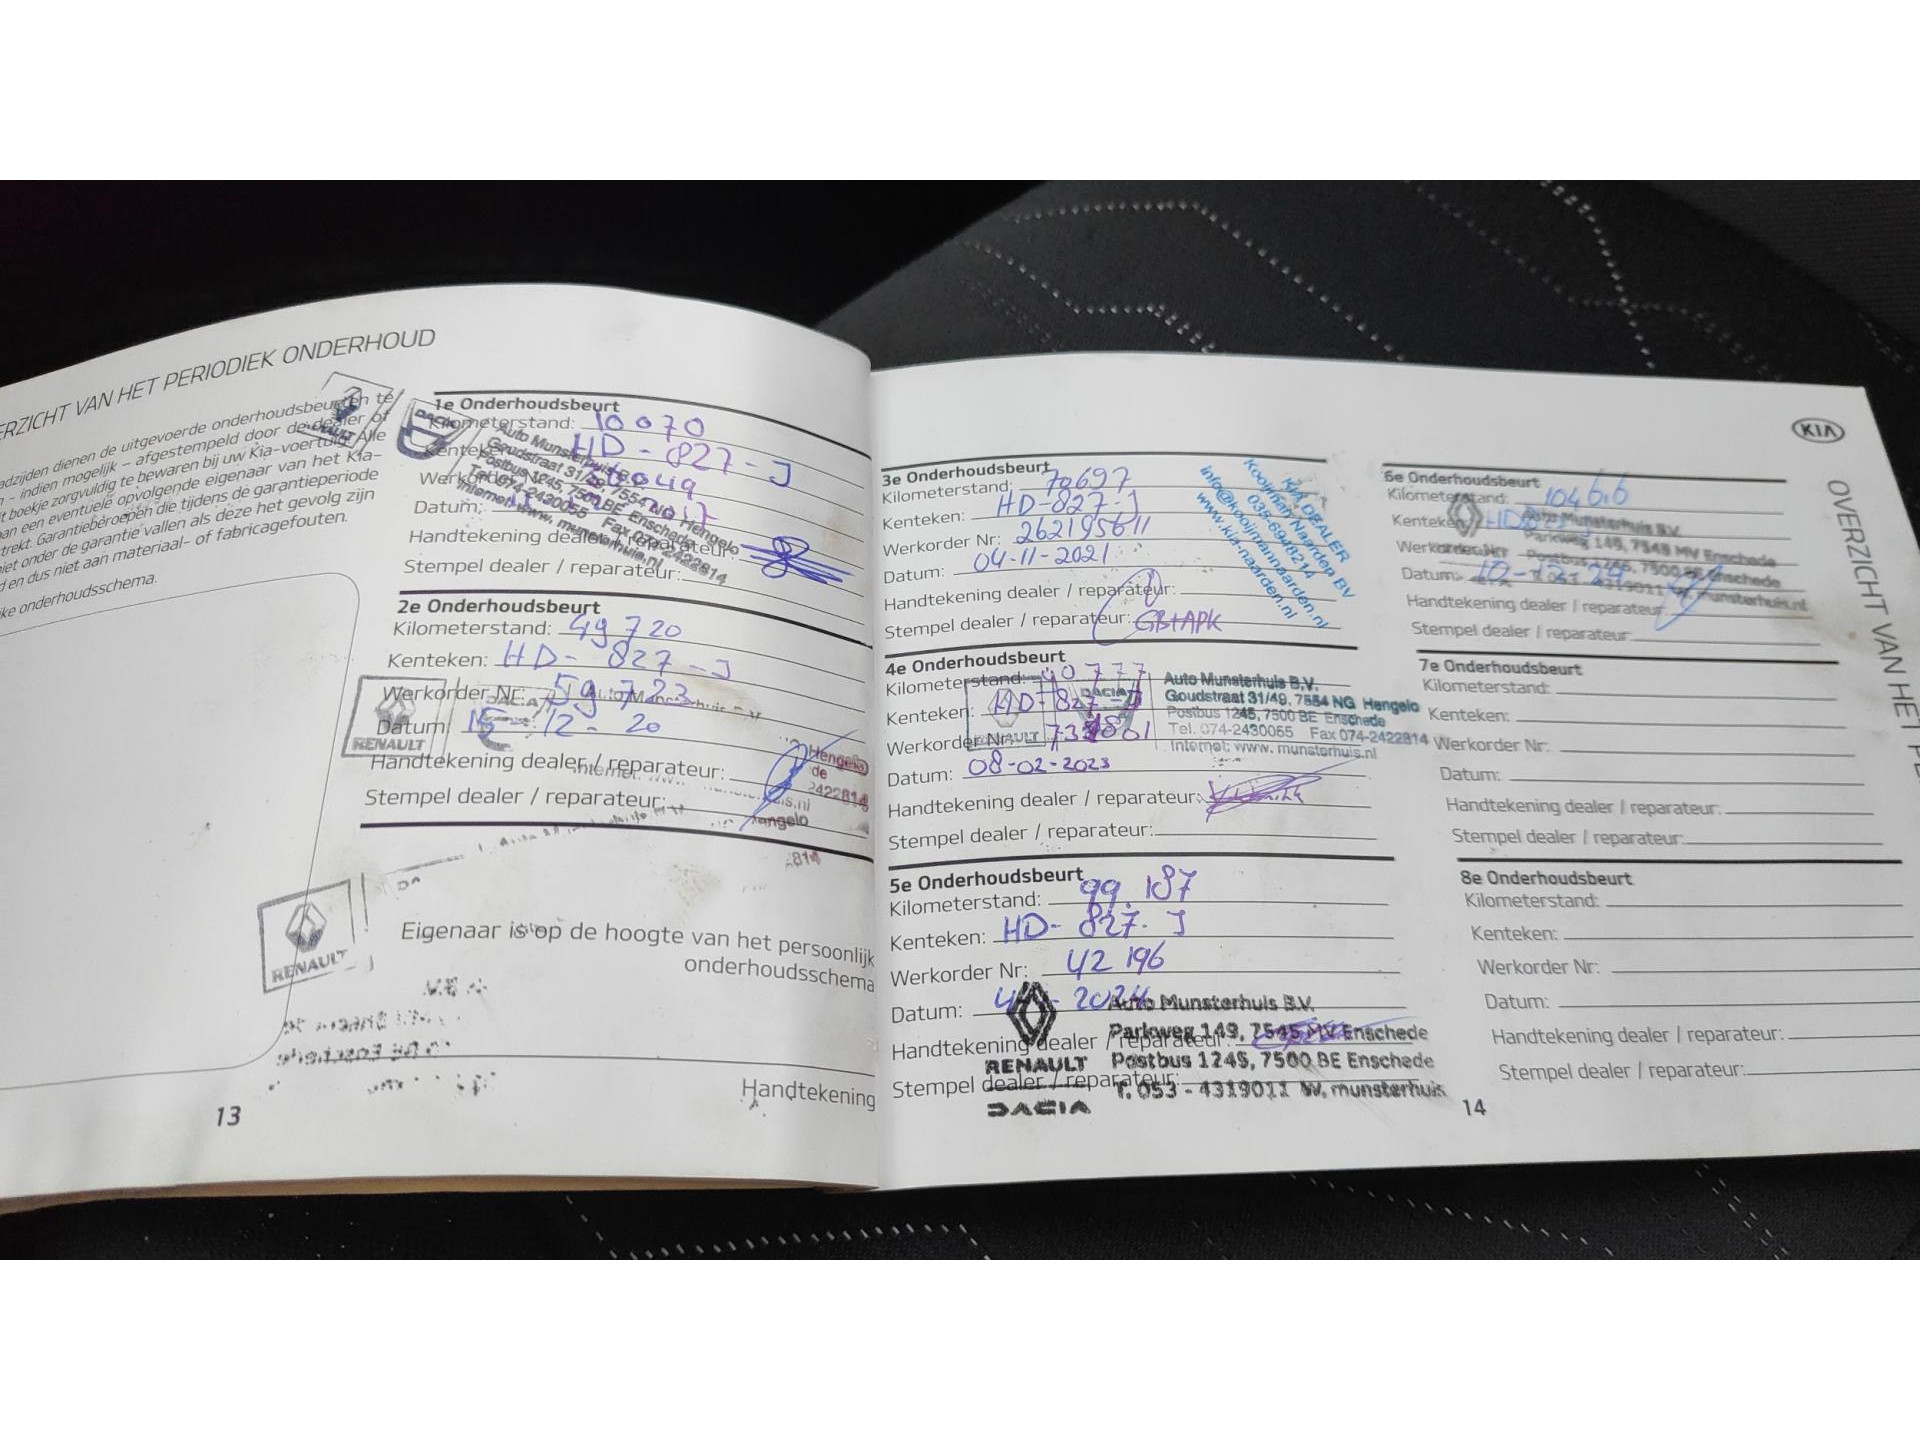 ERZICHT VAN HET PERIODIEK ONDERHOUD
adzijden dienen de uitgevoerde onderhoudsbeurten te
n - indien mogelijk - afgestempeld door de dealer of
t boekje zorgvuldig te bewaren bij uw Kia-voertuig. Alle
aan een eventuele opvolgende eigenaar van het Kia-
trekt. Garantieberoepen die tijdens de garantieperiode
niet onder de garantie vallen als deze het gevolg zijn
d en dus niet aan materiaal- of fabricagefouten.
ke onderhoudsschema.
1e Onderhoudsbeurt
Kilometerstand: 10070
Kenteken: HD-827-J
Werkorder
Datum:
Handtekening dealer / reparateur:
Stempel dealer / reparateur:
DACIA
Auto Munsterhuis B.V.
Goudstraat 31/49, 7554 NG Hengelo
Postbus 1245, 7500 BE Enschede
Tel. 074-2430065 Fax 074-2422814
Internet: www. munsterhuis.nl
2e Onderhoudsbeurt
Kilometerstand: 49720
Kenteken: HD-827-J
Werkorder Nr: 59723
Datum: 15-12-20
Handtekening dealer / reparateur:
Stempel dealer / reparateur:
RENAULT
DACIA
Hengelo
de
2422814
RENAULT
Eigenaar is op de hoogte van het persoonlijk
onderhoudsschema
Handtekening
13
KIA
OVERZICHT VAN HET PE
3e Onderhoudsbeurt
Kilometerstand: 70697
Kenteken: HD-827-J
Werkorder Nr: 262195611
Datum: 04-11-2021
Handtekening dealer / reparateur:
Stempel dealer / reparateur: GB+APK
KIA DEALER
Kooijman Naarden BV
035-6948214
info@kooijmannaarden.nl
www.kia-naarden.nl
4e Onderhoudsbeurt
Kilometerstand: 90777
Kenteken: HD-827-J
Werkorder Nr:
Datum: 08-02-2023
Handtekening dealer / reparateur:
Stempel dealer / reparateur:
DACIA
Auto Munsterhuis B.V.
Goudstraat 31/49, 7554 NG Hengelo
Postbus 1245, 7500 BE Enschede
Tel. 074-2430065 Fax 074-2422814
Internet: www. munsterhuis.nl
5e Onderhoudsbeurt
Kilometerstand: 99.187
Kenteken: HD-827-J
Werkorder Nr: 42196
Datum: 2024
Handtekening dealer / reparateur:
Stempel dealer / reparateur:
RENAULT
DACIA
Auto Munsterhuis B.V.
Parkweg 149, 7545 MV Enschede
Postbus 1245, 7500 BE Enschede
T. 053 - 4319011 W. munsterhuis
6e Onderhoudsbeurt
Kilometerstand:
Kenteken:
Werkorder Nr:
Datum:
Handtekening dealer / reparateur:
Stempel dealer / reparateur:
Auto Munsterhuis B.V.
Parkweg 149, 7545 MV Enschede
Postbus 1245, 7500 BE Enschede
7e Onderhoudsbeurt
Kilometerstand:
Kenteken:
Werkorder Nr:
Datum:
Handtekening dealer / reparateur:
Stempel dealer / reparateur:
8e Onderhoudsbeurt
Kilometerstand:
Kenteken:
Werkorder Nr:
Datum:
Handtekening dealer / reparateur:
Stempel dealer / reparateur:
14